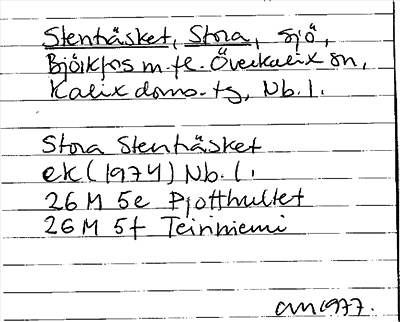 Stenträsket, Stora, sjö,
Björkfors m. fl. Överkalix sn,
Kalix doms. tg, Nb. l.
Stora Stenträsket
ek (1974) Nb. l.
26 M 5e Pjotthultet
26 M 5f Teiriniemi
1977.